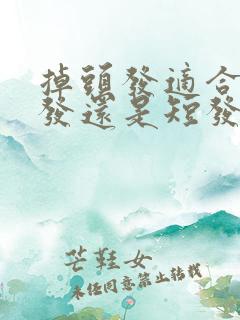 掉頭發適合
發還是短發
芒鞋女
未经同意禁止转载